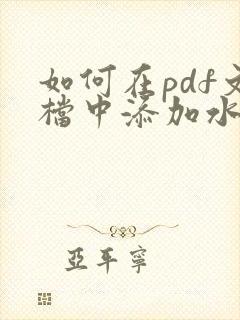 如何在pdf文
檔中添加水
亞平寧